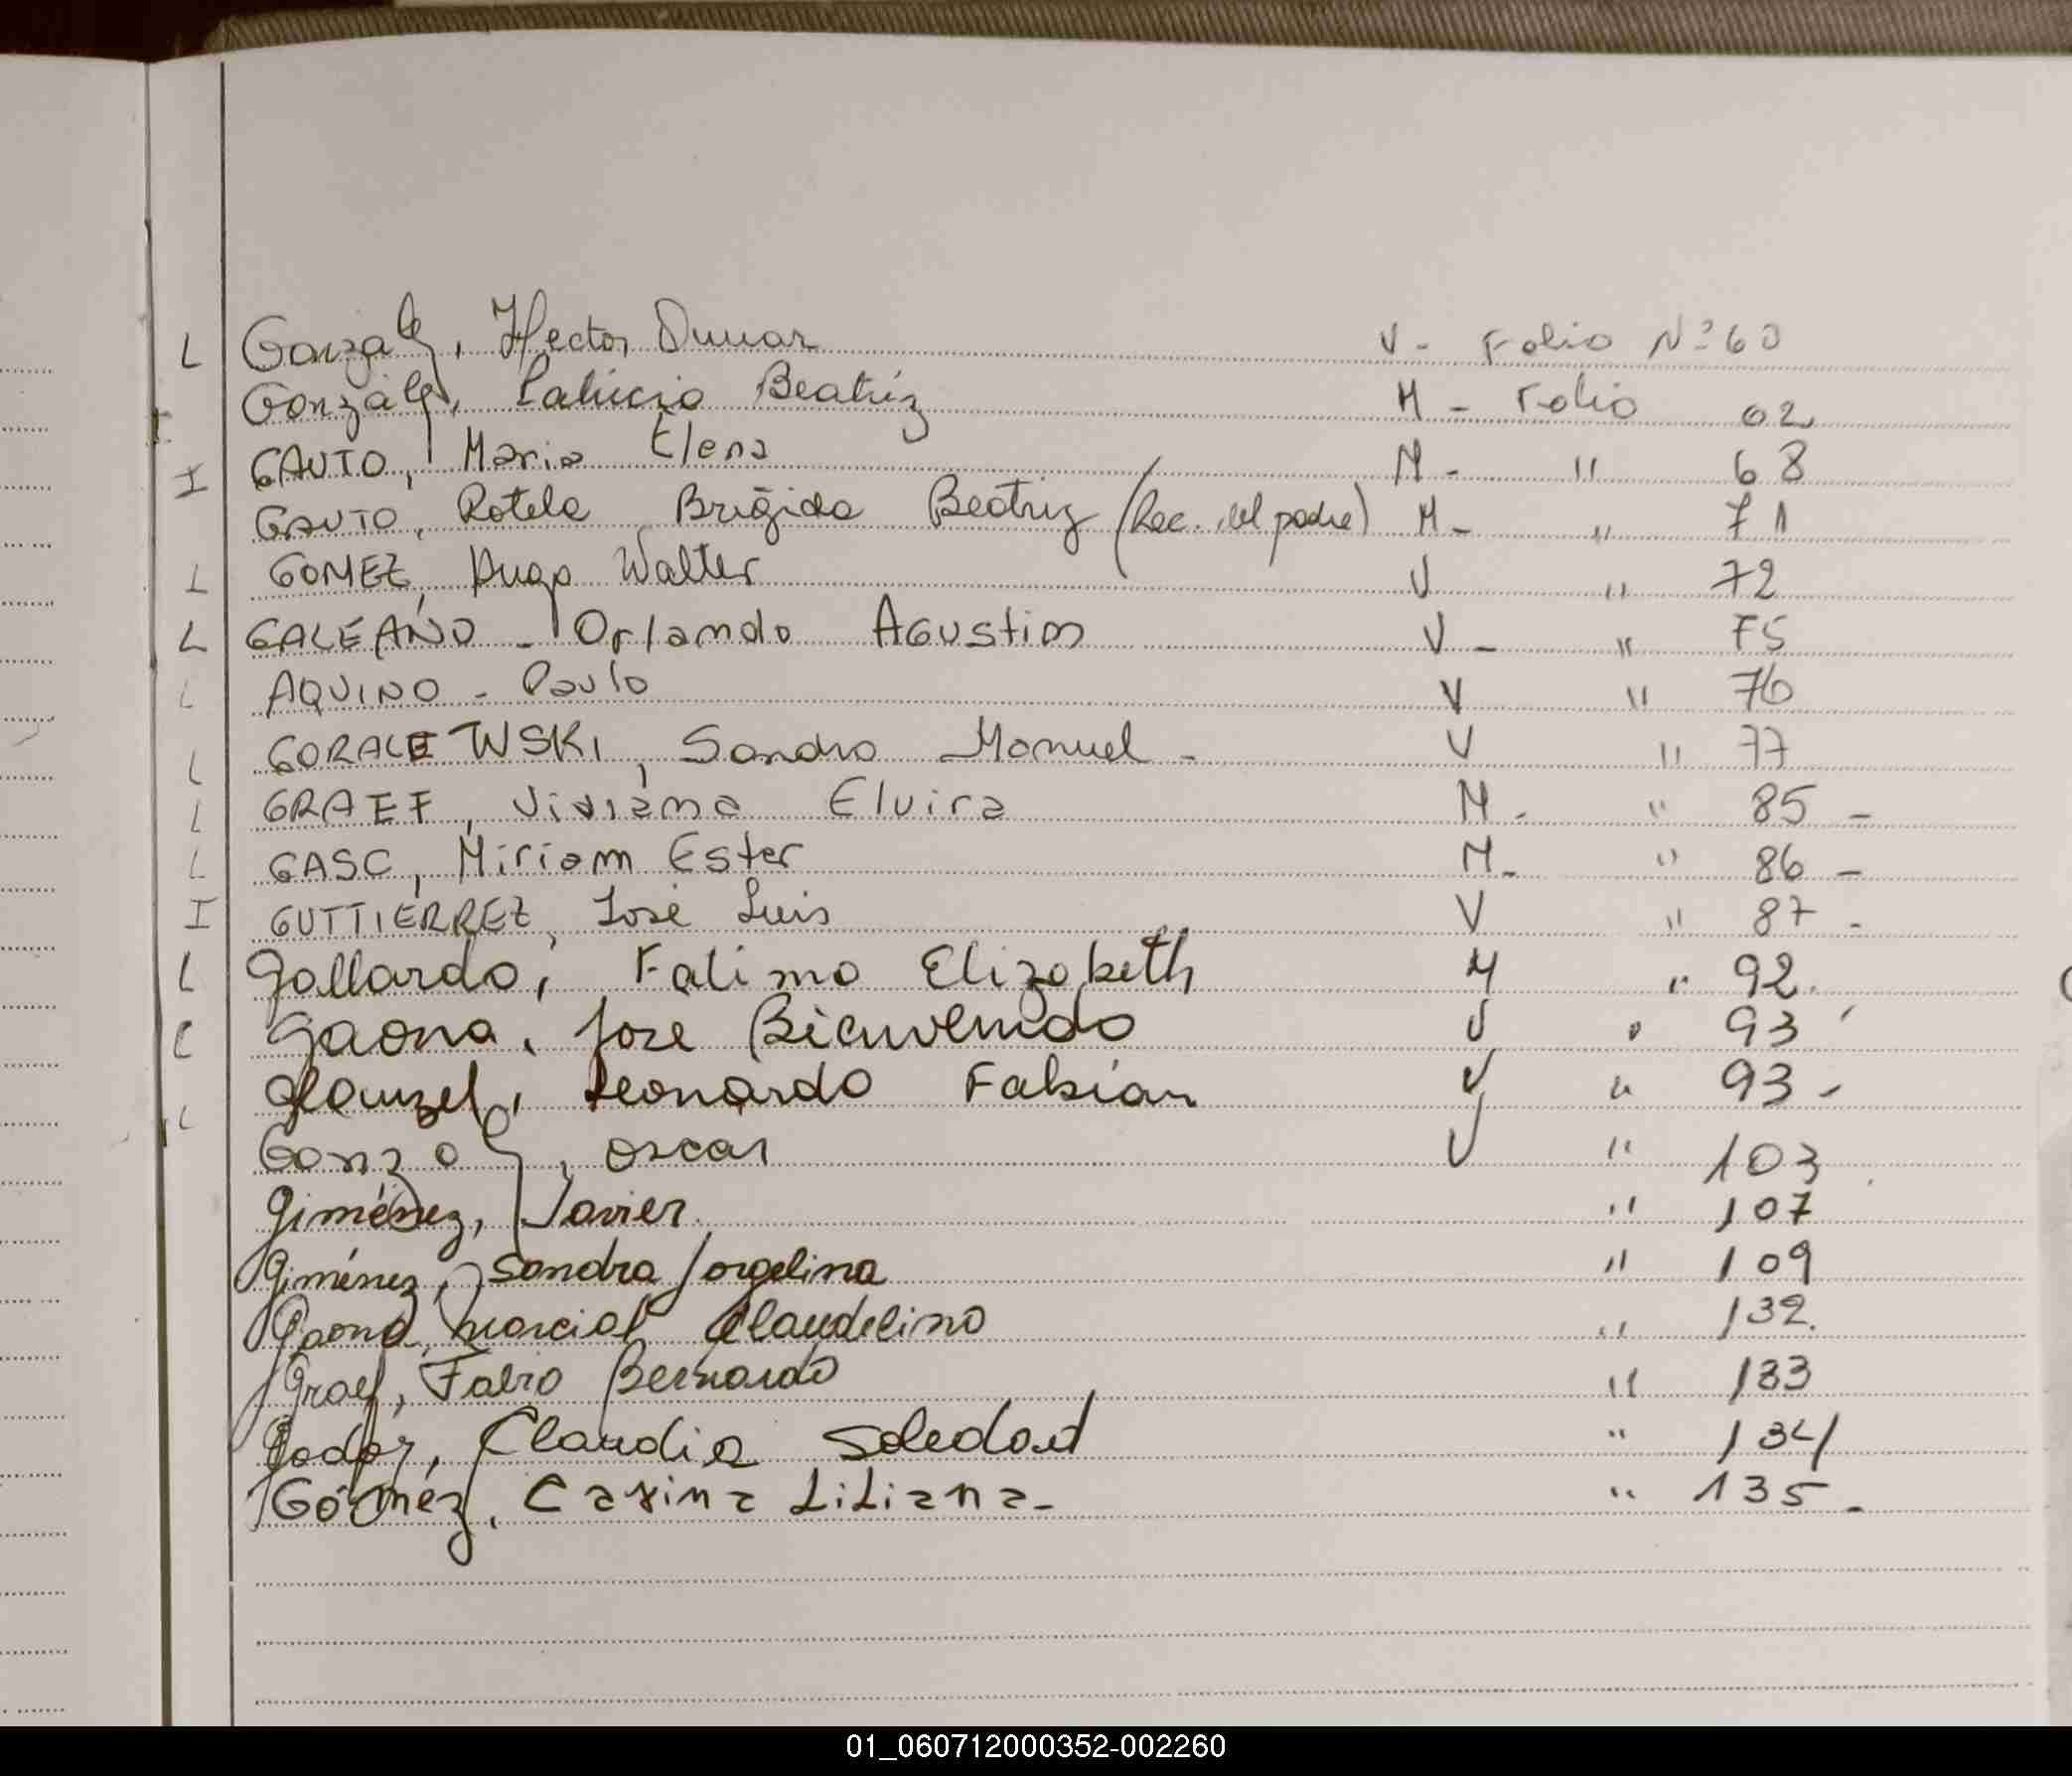 L González, Hector Dumar V - Folio Nº 60
González, Patricia Beatríz M - Folio 62
I GAUTO, Maria Elena M - " 68
GAUTO, Rotela Brígida Beatriz (Rec. del padre) M - " 71
L GOMEZ, Hugo Walter V " 72
L GALEANO - Orlando AGUstin V - " 75
L AQUINO - Paulo V " 76
L GORALEWSKI, Sandro Manuel - V " 77
L GRAEF, Viviana Elvira M - " 85 -
L GASC, Miriam Ester M - " 86 -
I GUTTIERREZ, José Luis V " 87 -
L Gallardo, Fatima Elizabeth M " 92.
L Gaona, Jose Bienvenido V " 93
Leonardo Fabian V " 93 -
L Gonzalez, Oscar V " 103
Giménez, Javier " 107
Giménez, Sandra Jorgelina " 109
Gaona, Marcial Claudelino " 132.
Graef, Fabio Bernardo " 133
Godoy, Claudia Soledad " 134
Gómez, Carina Liliana - " 135 -
01_060712000352-002260